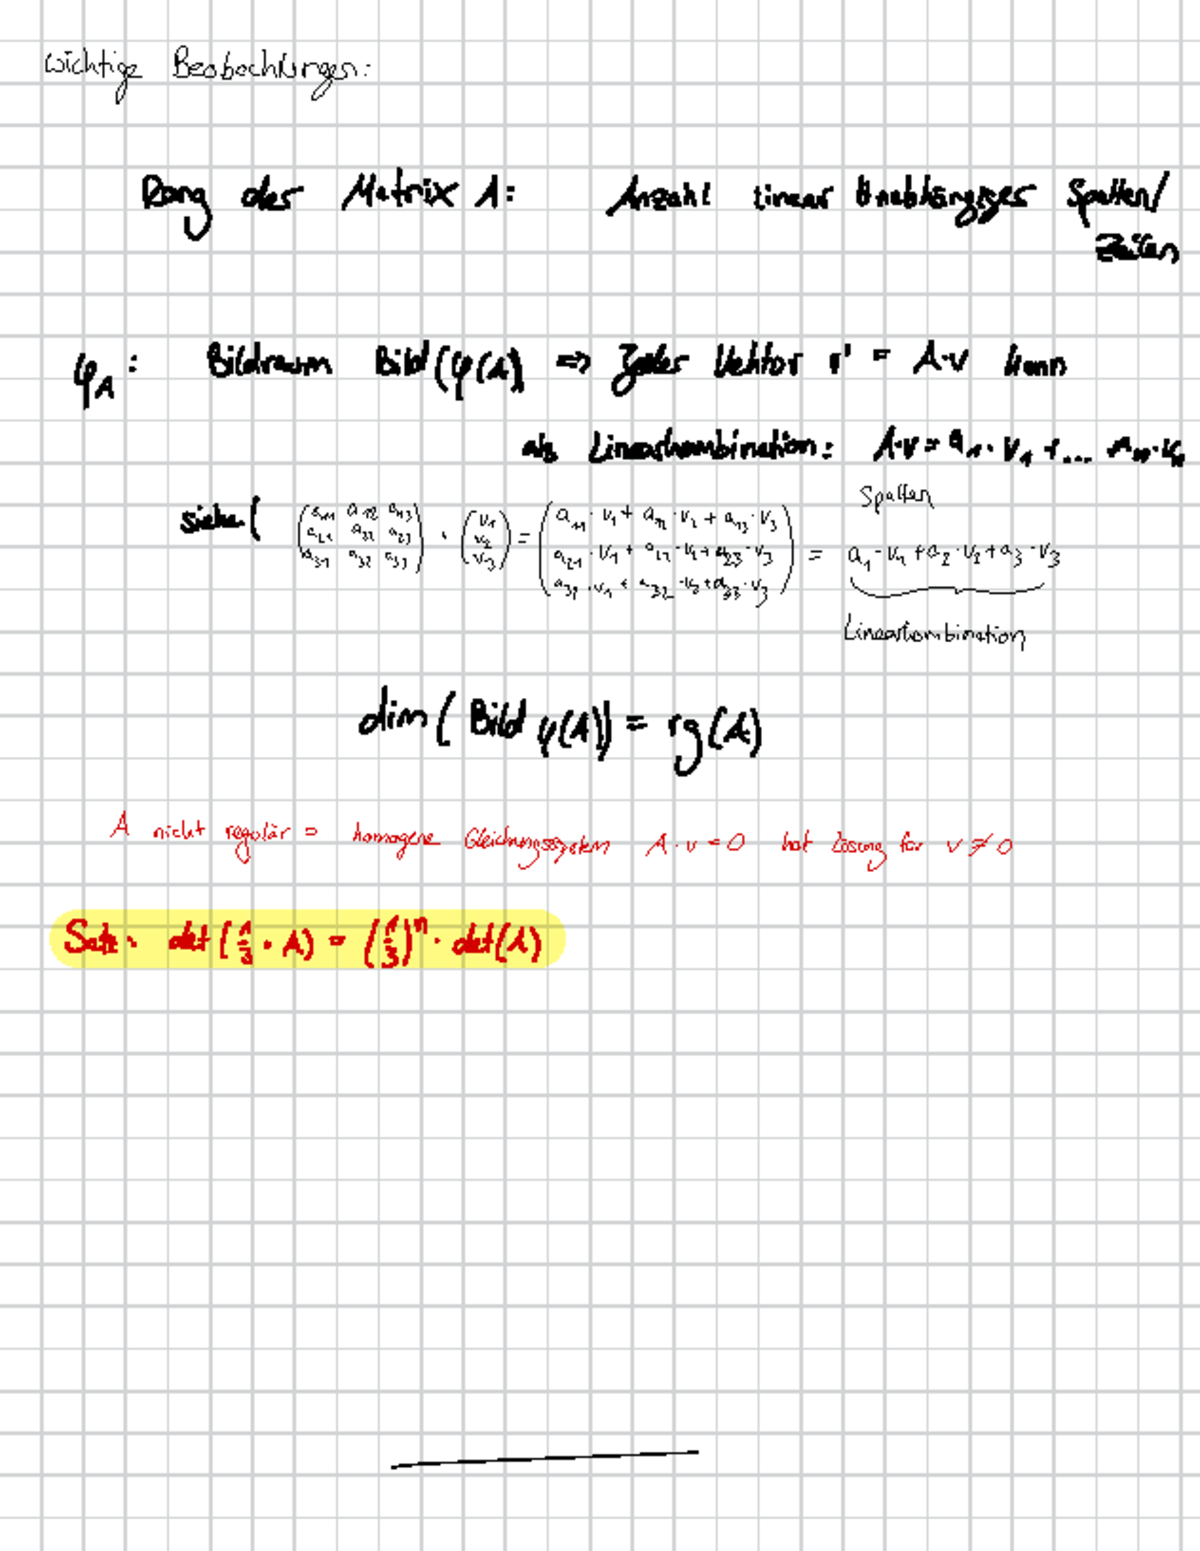 wichtige Beobachtungen:
Rang der Matrix A: Anzahl linear Unabhängiger Spalten/
Zeilen
φA: Bildraum Bild(φ(A)) => Jeder Vektor v' = A·v kann
als Linearkombination: A·v = a1·v1 + ... an·vn
Spalten
siehe ( (a11 a12 a13 / a21 a22 a23 / a31 a32 a33) · (v1 / v2 / v3) = (a11·v1 + a12·v2 + a13·v3 / a21·v1 + a22·v2 + a23·v3 / a31·v1 + a32·v2 + a33·v3) = a1·v1 + a2·v2 + a3·v3
Linearkombination
dim(Bild φ(A)) = rg(A)
A nicht regulär = homogene Gleichungssystem A·v = 0 hat Lösung für v ≠ 0
Satz: det(1/3 · A) = (1/3)^n · det(A)